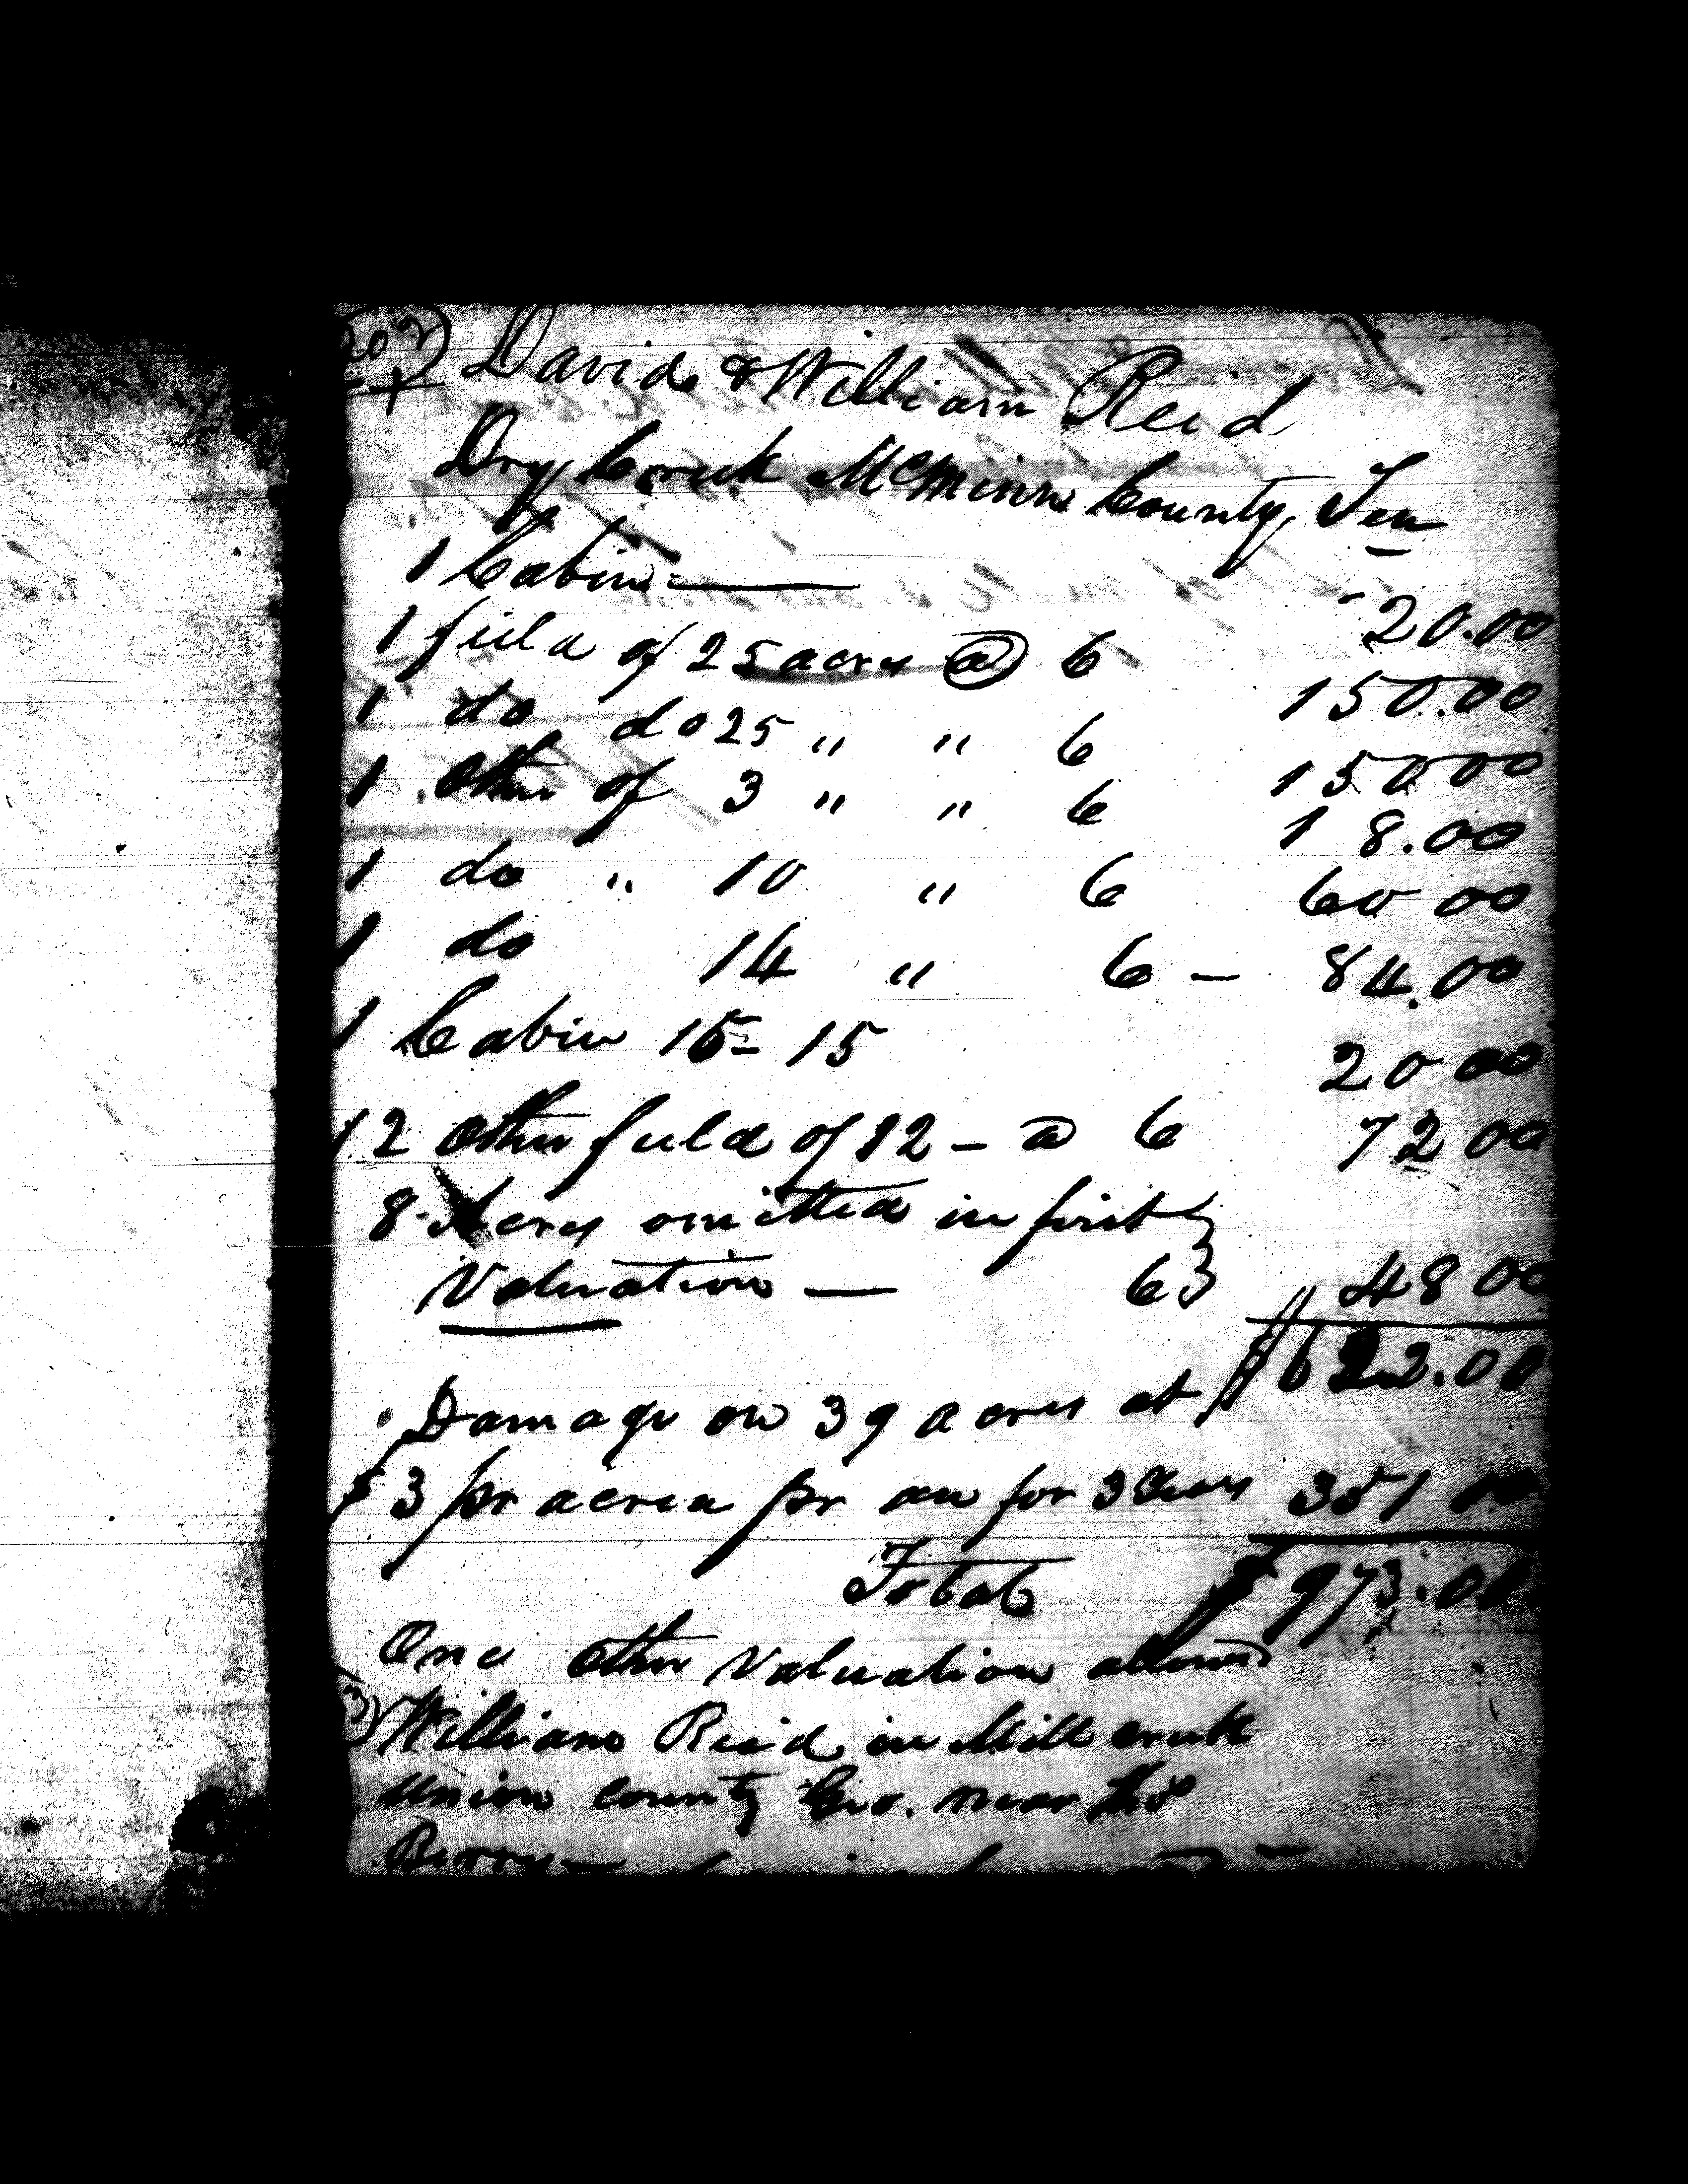 David & William Reid
Dry Creek McMinn County, Ten
1 Cabin 20.00
1 field of 25 acres @ 6 150.00
1 do do 25 " " 6 150 00
1 other of 3 " " 6 18.00
1 do " 10 " 6 60 00
1 do 14 " 6 — 84.00
1 Cabin 15 - 15 20 00
12 other field of 12 — @ 6 72 00
8 Acres omitted in first
Valuation — 6 48 00
$622.00
Damage on 39 acres at
$3 pr acrea pr an for 3 Years 351 00
Total $973.00
One other Valuation allowed
William Reid in Mill creek
Union county Geo. near
Berry